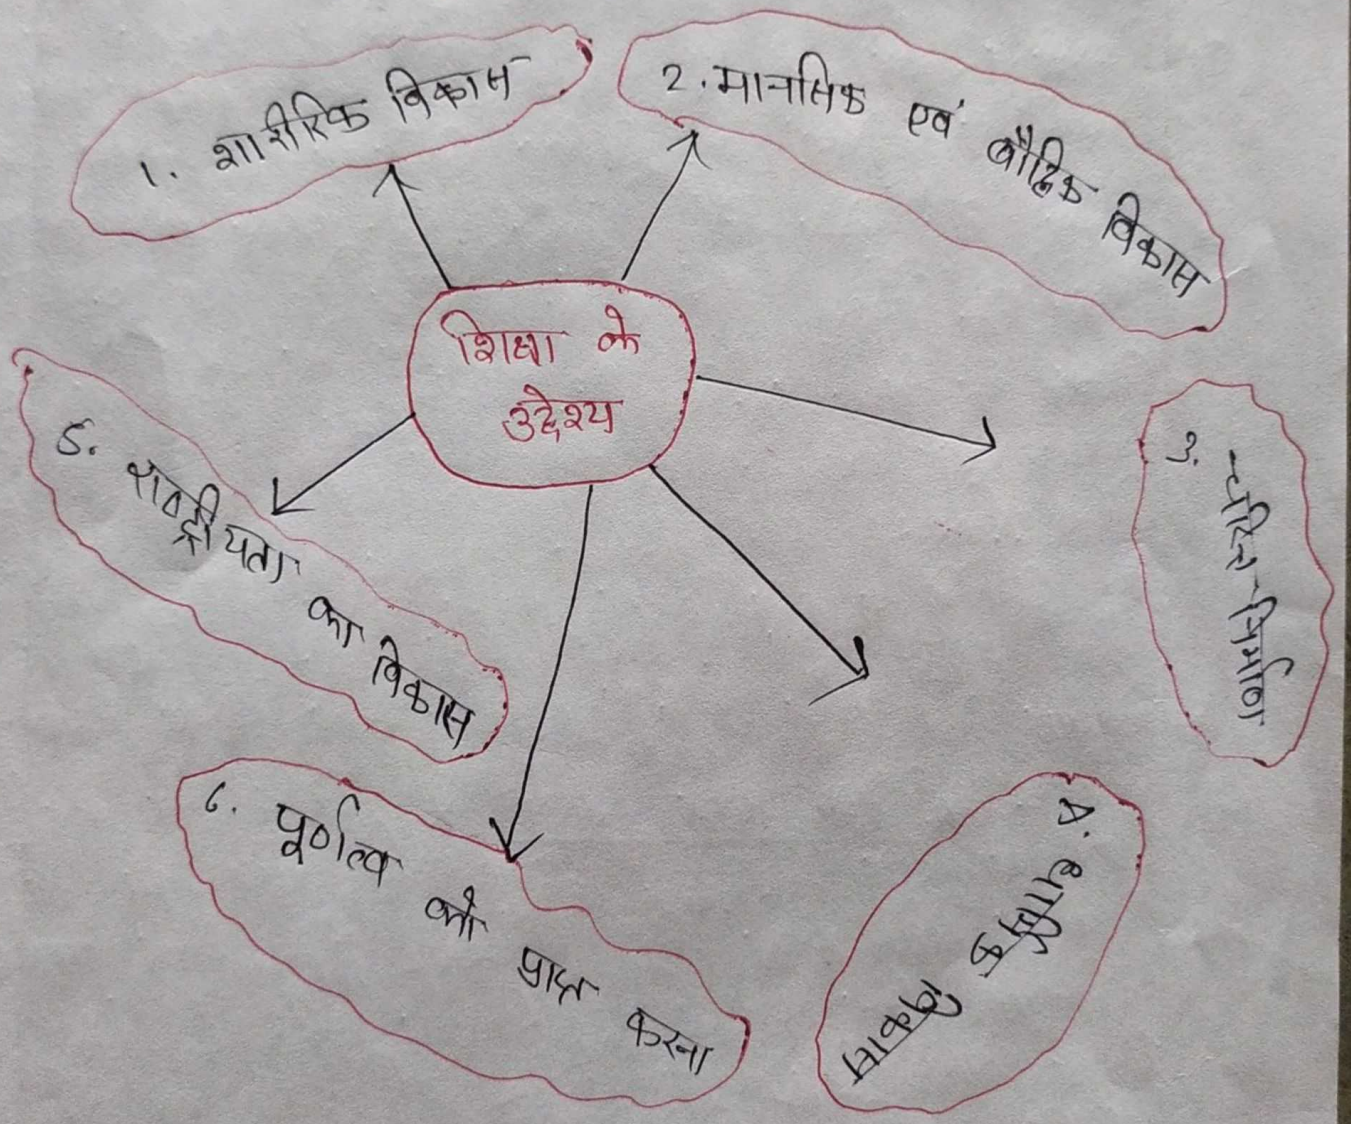 शिक्षा के
उद्देश्य
1. शारीरिक विकास
2. मानसिक एवं बौद्धिक विकास
3. चरित्र-निर्माण
4. धार्मिक विकास
5. राष्ट्रीयता का विकास
6. पूर्णत्व को प्राप्त करना